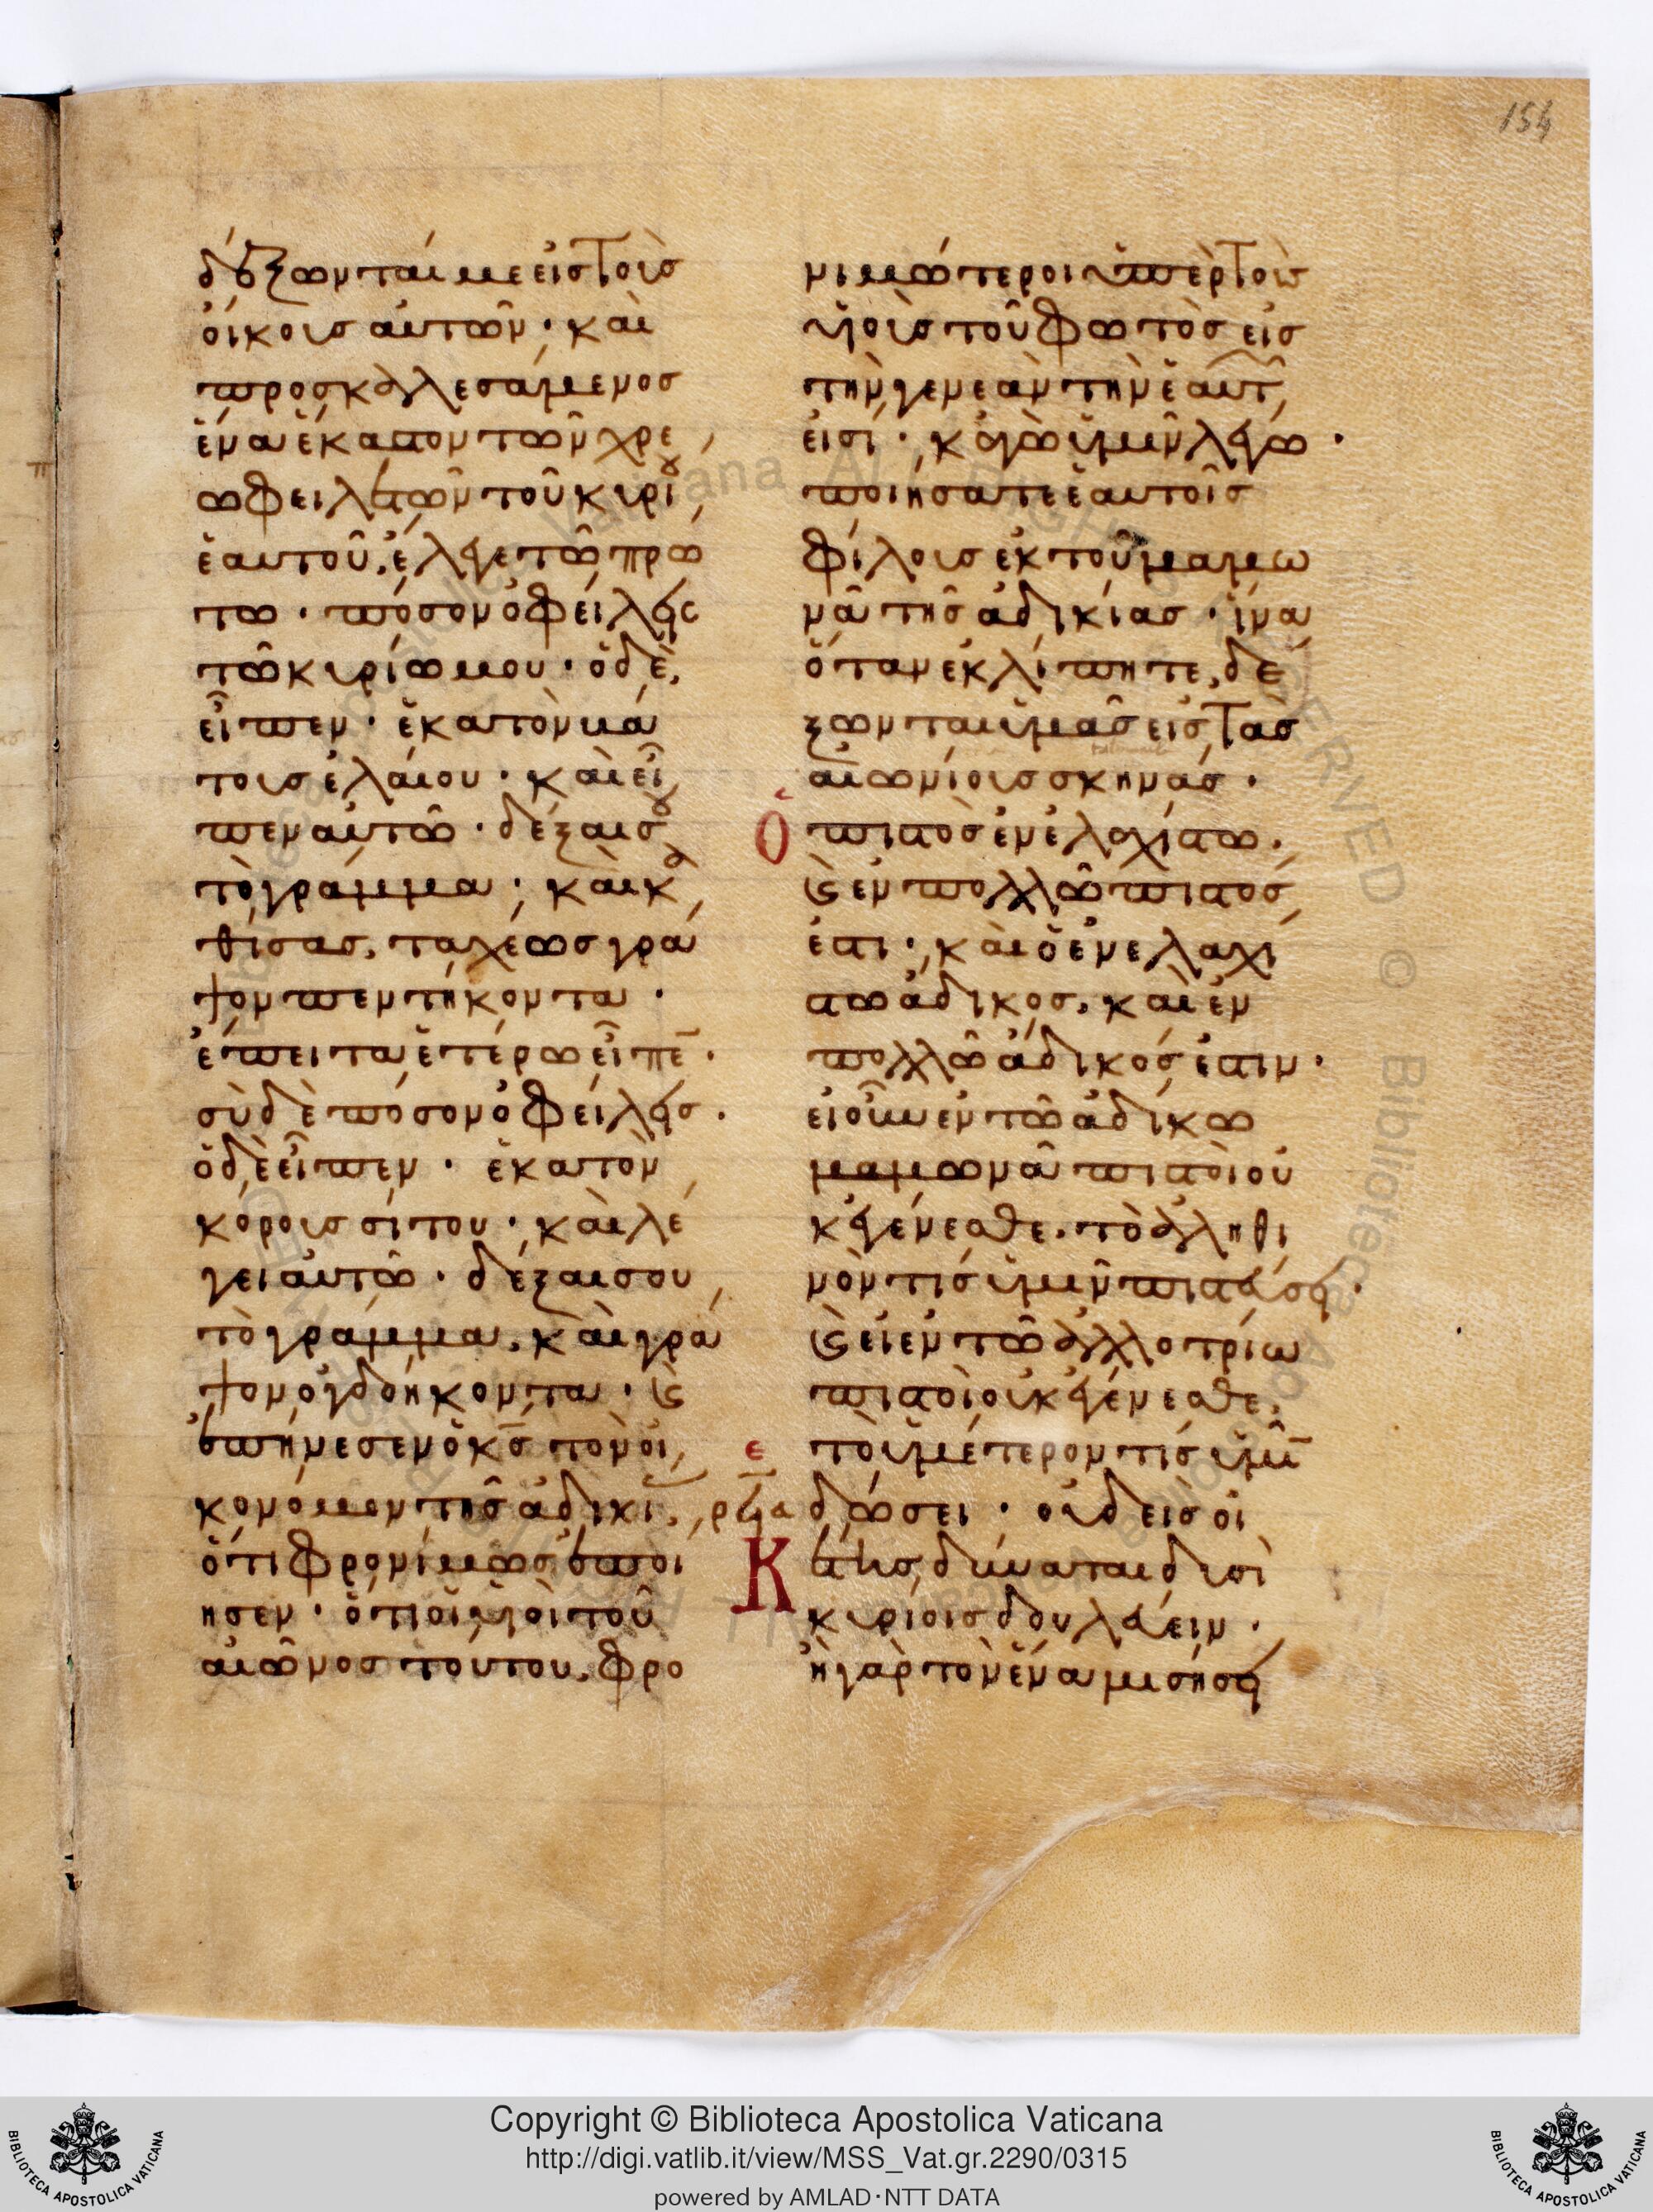 154
δέξωνταί με εἰς τοὺς
οἴκους αὐτῶν· καὶ
προσκαλεσάμενος
ἕνα ἕκαστον τῶν χρε
ωφειλετῶν τοῦ κυρίου
ἑαυτοῦ, ἔλεγε τῶ πρώ
τω· πόσον ὀφείλεις
τῶ κυρίω μου· ὁ δὲ,
εἶπεν· ἑκατὸν βά
τους ἐλαίου· καὶ εἶ
πεν αὐτῶ· δέξαι σου
τὸ γράμμα· καὶ κα
θίσας, ταχέως γρά
ψον πεντήκοντα·
ἔπειτα ἑτέρω εἶπε·
σὺ δὲ πόσον ὀφείλεις·
ὁ δὲ εἶπεν· ἑκατὸν
κόρους σίτου· καὶ λέ
γει αὐτῶ· δέξαι σου
τὸ γράμμα, καὶ γρά
ψον ὀγδοήκοντα· καὶ
ἐπήνεσεν ὁ κ̅ς̅ τὸν οἰ
κονόμον τῆς ἀδικίας,
ὅτι φρονίμως ἐποί
ησεν· ὅτι οἱ υἱοὶ τοῦ
αἰῶνος τούτου, φρο
νιμώτεροι ὑπὲρ τοὺς
υἱοὺς τοῦ φωτὸς εἰς
τὴν γενεὰν τὴν ἑαυτῶν
εἰσί· κἀγὼ ὑμῖν λέγω·
ποιήσατε ἑαυτοῖς
φίλους ἐκ τοῦ μαμω
νᾶ τῆς ἀδικίας· ἵνα
ὅταν ἐκλίπητε, δέ
ξωνται ὑμᾶς εἰς τὰς
αἰωνίους σκηνάς·
Ὁ πιστὸς ἐν ἐλαχίστω,
καὶ ἐν πολλῶ πιστός
ἐστι· καὶ ὁ ἐν ἐλαχί
στω ἄδικος, καὶ ἐν
πολλῶ ἄδικός ἐστιν·
εἰ οὖν ἐν τῶ ἀδίκω
μαμωνᾶ πιστοὶ οὐ
κ ἐγένεσθε, τὸ ἀληθι
νὸν τίς ὑμῖν πιστεύσει·
καὶ εἰ ἐν τῶ ἀλλοτρίω
πιστοὶ οὐκ ἐγένεσθε,
ε τὸ ὑμέτερον τίς ὑμῖν
ρϟα δώσει· οὐδεὶς οἰ
Κέτης, δύναται δυσὶ
κυρίοις δουλεύειν·
ἢ γὰρ τὸν ἕνα μισήσει
Copyright © Biblioteca Apostolica Vaticana
http://digi.vatlib.it/view/MSS_Vat.gr.2290/0315
powered by AMLAD·NTT DATA
BIBLIOTECA APOSTOLICA VATICANA
BIBLIOTECA APOSTOLICA VATICANA